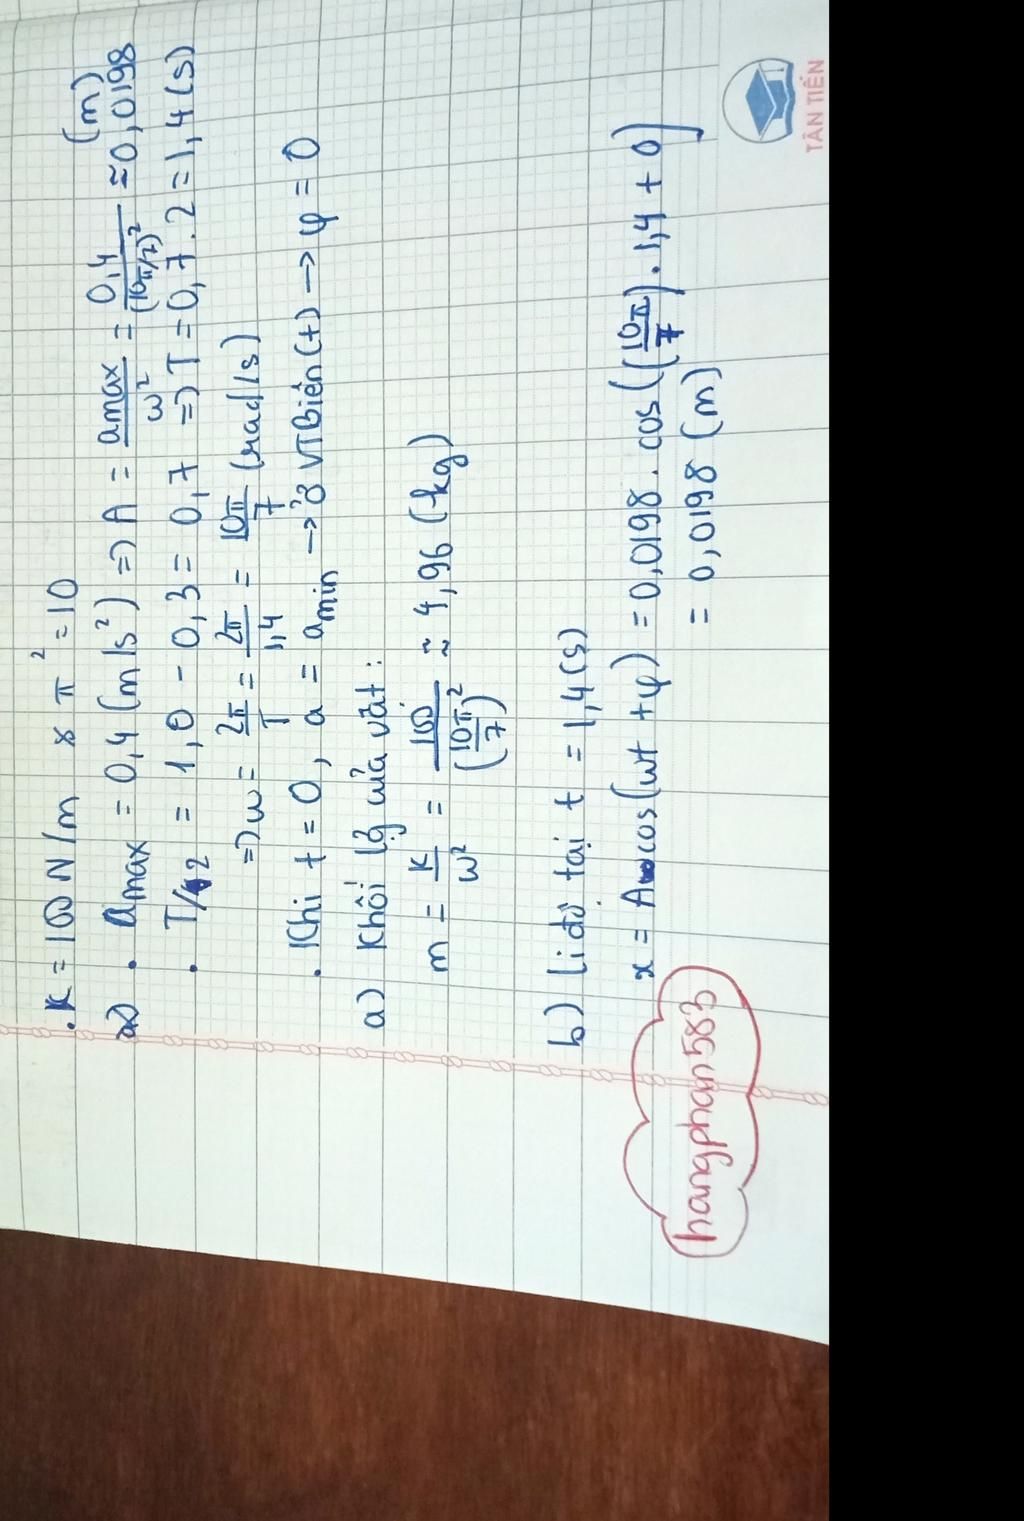 . K = 100 N/m & π² = 10
. amax = 0,4 (m/s²) => A = amax/ω² = 0,4/(10π/7)² ≈ 0,0198 (m)
. T/2 = 1,0 - 0,3 = 0,7 => T = 0,7 . 2 = 1,4 (s)
=> ω = 2π/T = 2π/1,4 = 10π/7 (rad/s)
. Khi t = 0, a = amin → ở VT Biên (+) → φ = 0
a) Khối lg của vật:
m = K/ω² = 100/(10π/7)² ≈ 4,96 (kg)
b) li độ tại t = 1,4 (s)
x = A cos(ωt + φ) = 0,0198 . cos((10π/7) . 1,4 + 0)
= 0,0198 (m)
hoangphong583
TÂN TIẾN